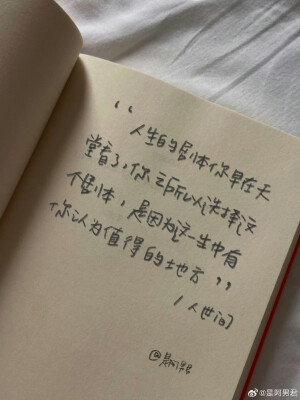 “人生的剧本你早在天
堂看了,你之所以选择这
个剧本,是因为这一生中有
你认为值得的地方”
/人世间
@是阿男君
@是阿男君